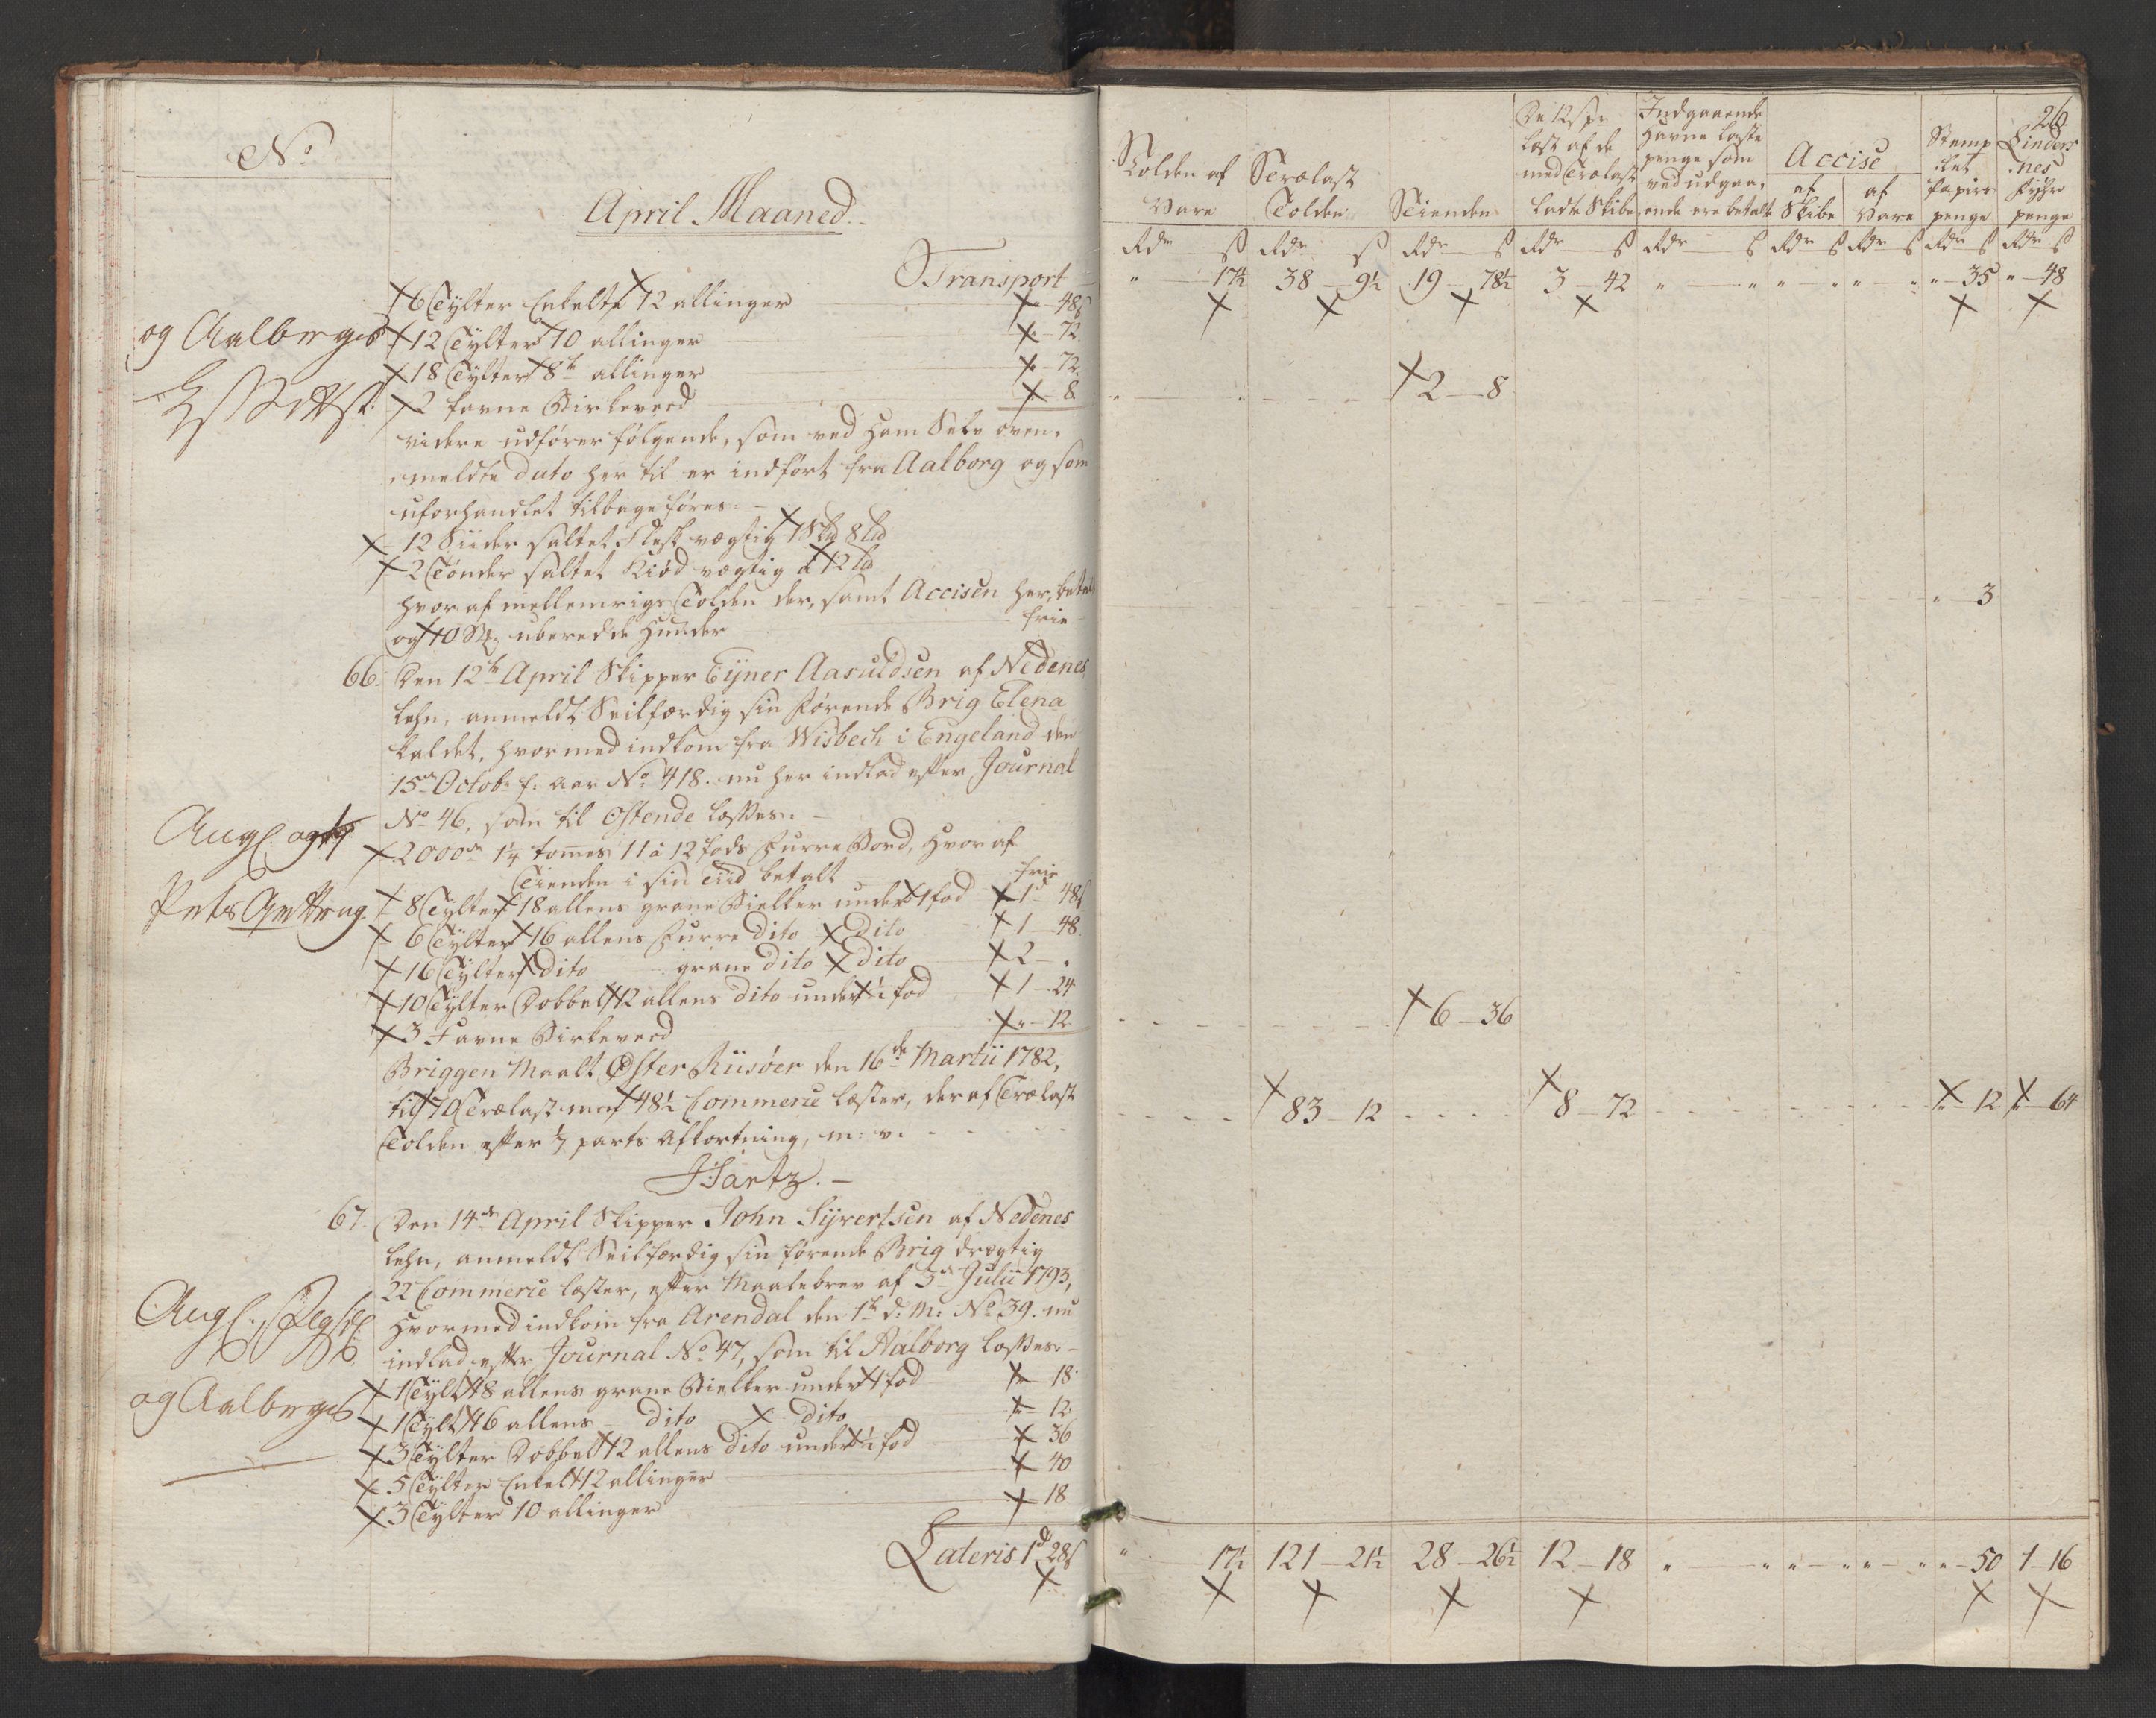 No.
April Maaned.
Transport
6 Tylter Enkelte 12 allinger " - 48 s
og Aalborgs
12 Tylter 10 allinger " - 72.
18 Tylter 8te allinger " - 72.
2 favne Birkeved " 8
videre udfører følgende, som ved ham Selv oven-
meldte dato her til er indført fra Aalborg og som
uforhandlet tilbage føres.
12 Siider saltet Flesk vegtig 1 Skt 8 Ld
2 Tønder saltet Kiød vegtig a 12 Ld
hvor af mellemrigs Tolden der, samt Accisen her, betalt
og 10 uberedde Huuder frie
66. Den 12te April Skipper Eÿner Aasuldsen af Nedenes
Lehn, anmeldt Seilfærdig sin førende Brig Elena
kaldet, hvormed indkom fra Wisbech i Engeland den
15de Octobr f. aar No 418. nu her indlad efter Journal
No 46, som til Ostende losses.
2000de 1¼ tommes 11 a 12 fods Furre Bord, hvor af
Tienden i sin tiid betalt frie
8 Tylter 18 allens grane Bielker under 1 fod 1 d - 48 s
6 Tylter 16 allens Furre dito dito 1 - 48.
16 Tylter dito grane dito dito 2 - "
10 Tylter Dobbelt 12 allens dito under ½ fod 1 - 24
3 Favne Birkeved " - 12
Briggen Maalt Øster Riisøer den 16de Martii 1782,
til 70 Trælast mod 48½ Commerce læster, der af Trælast
Tolden efter 1/7 parts Afkortning, m: v.
Hartz.
67. Den 14de April Skipper John Sÿvertsen af Nedenes
Lehn, anmeldt Seilfærdig sin førende Brig drægtig
22 Commerce læster, efter Maalebrev af 3de Julii 1793,
hvormed indkom fra Arendal den 1te d: M: No 39. nu
indlad efter Journal No 47, som til Aalborg losses.
og Aalborgs
1 Tylt 18 allens grane Bielker under 1 fod " 18
1 Tylt 16 allens dito dito " 12
3 Tylter Dobbelt 12 allens dito under ½ fod " 36
5 Tylter Enkelt 12 allinger " 40
3 Tylter 10 allinger " 18
Lateris 1 d 28 s
26.
Tolden af Vare
Trælast Tolden
Tienden
De 12 s pr Læst af de med Trælast ladte Skibe
Indgaaende Havne laste penge som ved udgaaende ere betalt
Accise
af Skibe
af Vare
Stemplet papirs penge
Lindes nes fyhr penge
Rdr s Rdr s Rdr s Rdr s Rdr s Rdr s Rdr s Rdr s Rdr s
" 17½ 38 - 9½ 19 - 78½ 3 - 42 " " " " " " - 35 " - 48
2 - 8
" 3
6 - 36
83 - 12 8 - 72 " 12 " 64
" 17½ 121 - 21½ 28 - 26½ 12 - 18 " " " " " " - 50 1 - 16